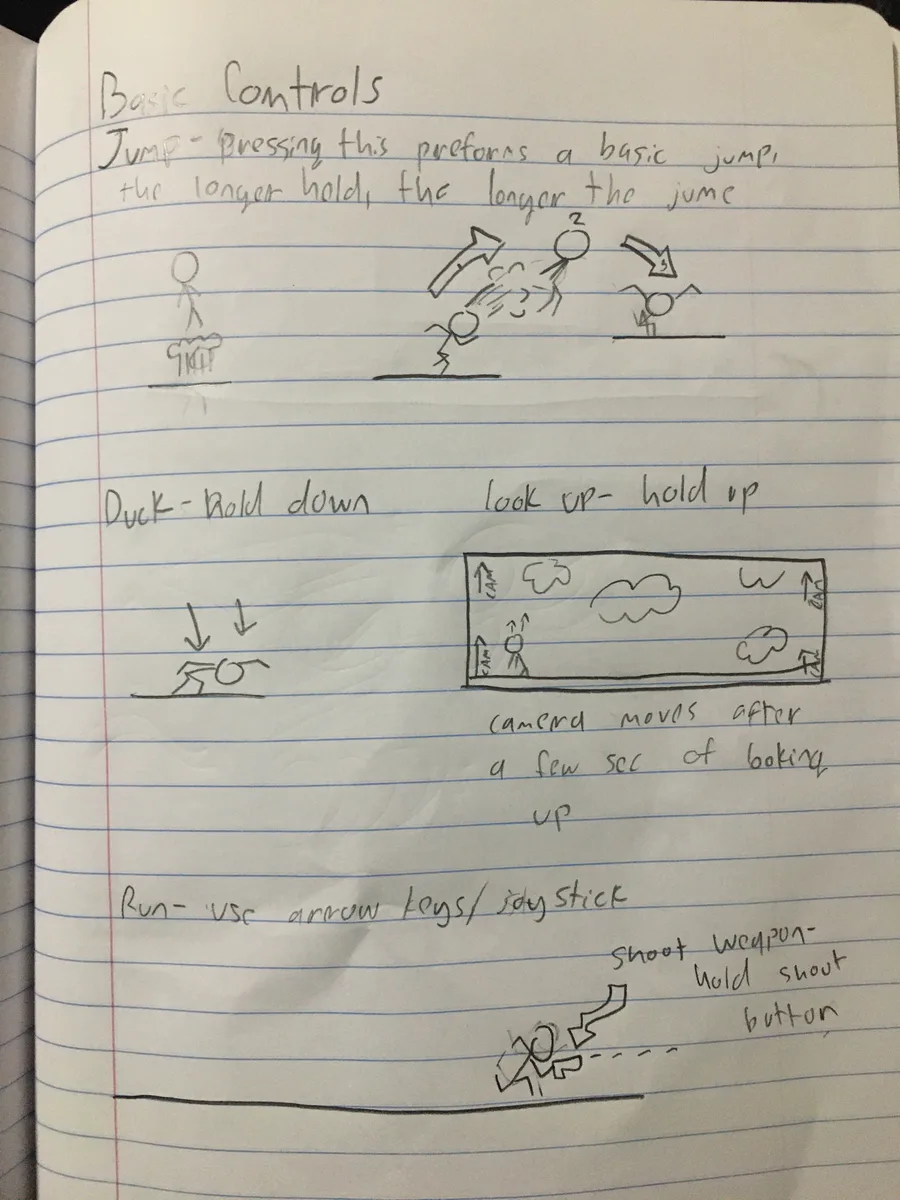 Basic Controls
Jump - pressing this preforms a basic jump,
the longer hold, the longer the jume
2
3
Duck - Hold down
look up - hold up
CAM
CAM
CAM
CAM
camera moves after
a few sec of looking
up
Run - use arrow keys/joystick
shoot weapon -
hold shoot
button